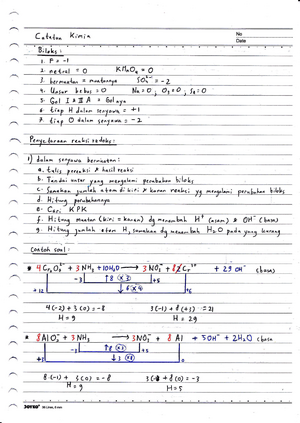 Catatan Kimia
No
Date
Biloks :
1. F = -1
2. netral = 0 KMnO₄ = 0
3. bermuatan = muatannya SO₄²⁻ = -2
4. Unsur bebas = 0 Na = 0 ; O₂ = 0 ; S₈ = 0
5. Gol I A & II A = Golnya
6. tiap H dalam senyawa = +1
7. tiap O dalam senyawa = -2
Penyetaraan reaksi redoks :
1) dalam senyawa bermuatan :
a. tulis pereaksi & hasil reaksi
b. Tandai unsur yang mengalami perubahan biloks
c. Samakan jumlah atom di kiri & kanan reaksi yg mengalami perubahan biloks
d. Hitung perubahannya
e. Cari KPK
f. Hitung muatan (kiri = kanan) dg menambah H⁺ (asam) & OH⁻ (basa)
g. Hitung jumlah atom H, samakan dg menambah H₂O pada yang kurang
Contoh soal :
-3 ↑8 (×3) +5
+12 ↓6 (×4)
4(-2) + 3(0) = -8 3(-1) + 8(+3) = 21
H = 9 H = 29
8AlO₂⁻ + 3NH₃ → 3NO₃⁻ + 8Al + 5OH⁻ + 2H₂O (basa
-3 ↑8 +5
+3 ↓3 0
8·(-1) + 3(0) = -8 3(-1) + 8(0) = -3
H = 9 H = 5
JOYKO